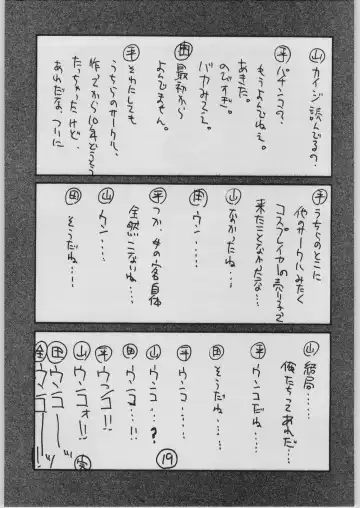 山 カイジ読んでるの?
平 パチンコで、
もうよんでねえ。
あきた。
のびすぎ。
バカみてえ。
田 最初から
よんでません。
平 それにしても
うちらのサークル、
作ってから10年どころ
たっちゃったけど、
あれだな、ついに
平 うちらのとこに
他のサークルみたく
コスプレイヤーの売り子って
来たことなかったな…
山 なかったね……
田 ウン……
平 つか、女の客自体
全然こないね……
山 ウン……
田 そうだね……
山 結局……
俺たちってあれだ…
平 ウンコだね……
田 そうだね……
平 ウンコ……
山 ウンコ……?
田 ウンコ……!
平 ウンコ!!
山 ウンコォ!!
田 ウンコ――!!
全 ウンコ――!!
完
19